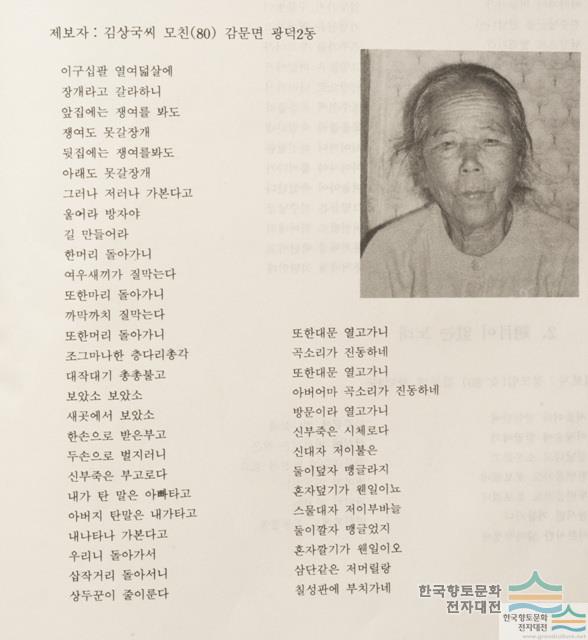 제보자 : 김상국씨 모친(80) 감문면 광덕2동
이구십팔 열여덟살에
장개라고 갈라하니
앞집에는 쟁여를 봐도
쟁여도 못갈장개
뒷집에는 쟁여를봐도
아래도 못갈장개
그러나 저러나 가본다고
울어라 방자야
길 만들어라
한머리 돌아가니
여우새끼가 질막는다
또한마리 돌아가니
까막까치 질막는다
또한머리 돌아가니
조그마나한 층다리총각
대작대기 총총불고
보았소 보았소
새곳에서 보았소
한손으로 받은부고
두손으로 벌지러니
신부죽은 부고로다
내가 탄 말은 아빠타고
아버지 탄말은 내가타고
내나타나 가본다고
우리니 돌아가서
삽작거리 돌아서니
상두꾼이 줄이룬다
또한대문 열고가니
곡소리가 진동하네
또한대문 열고가니
아버어마 곡소리가 진동하네
방문이라 열고가니
신부죽은 시체로다
신대자 저이불은
둘이덮자 맹글라지
혼자덮기가 웬일이뇨
스물대자 저이부바늘
둘이깔자 맹글었지
혼자깔기가 웬일이오
삼단같은 저머릴랑
칠성판에 부치가네
한국향토문화
전자대전
한국향토문화
전자대전